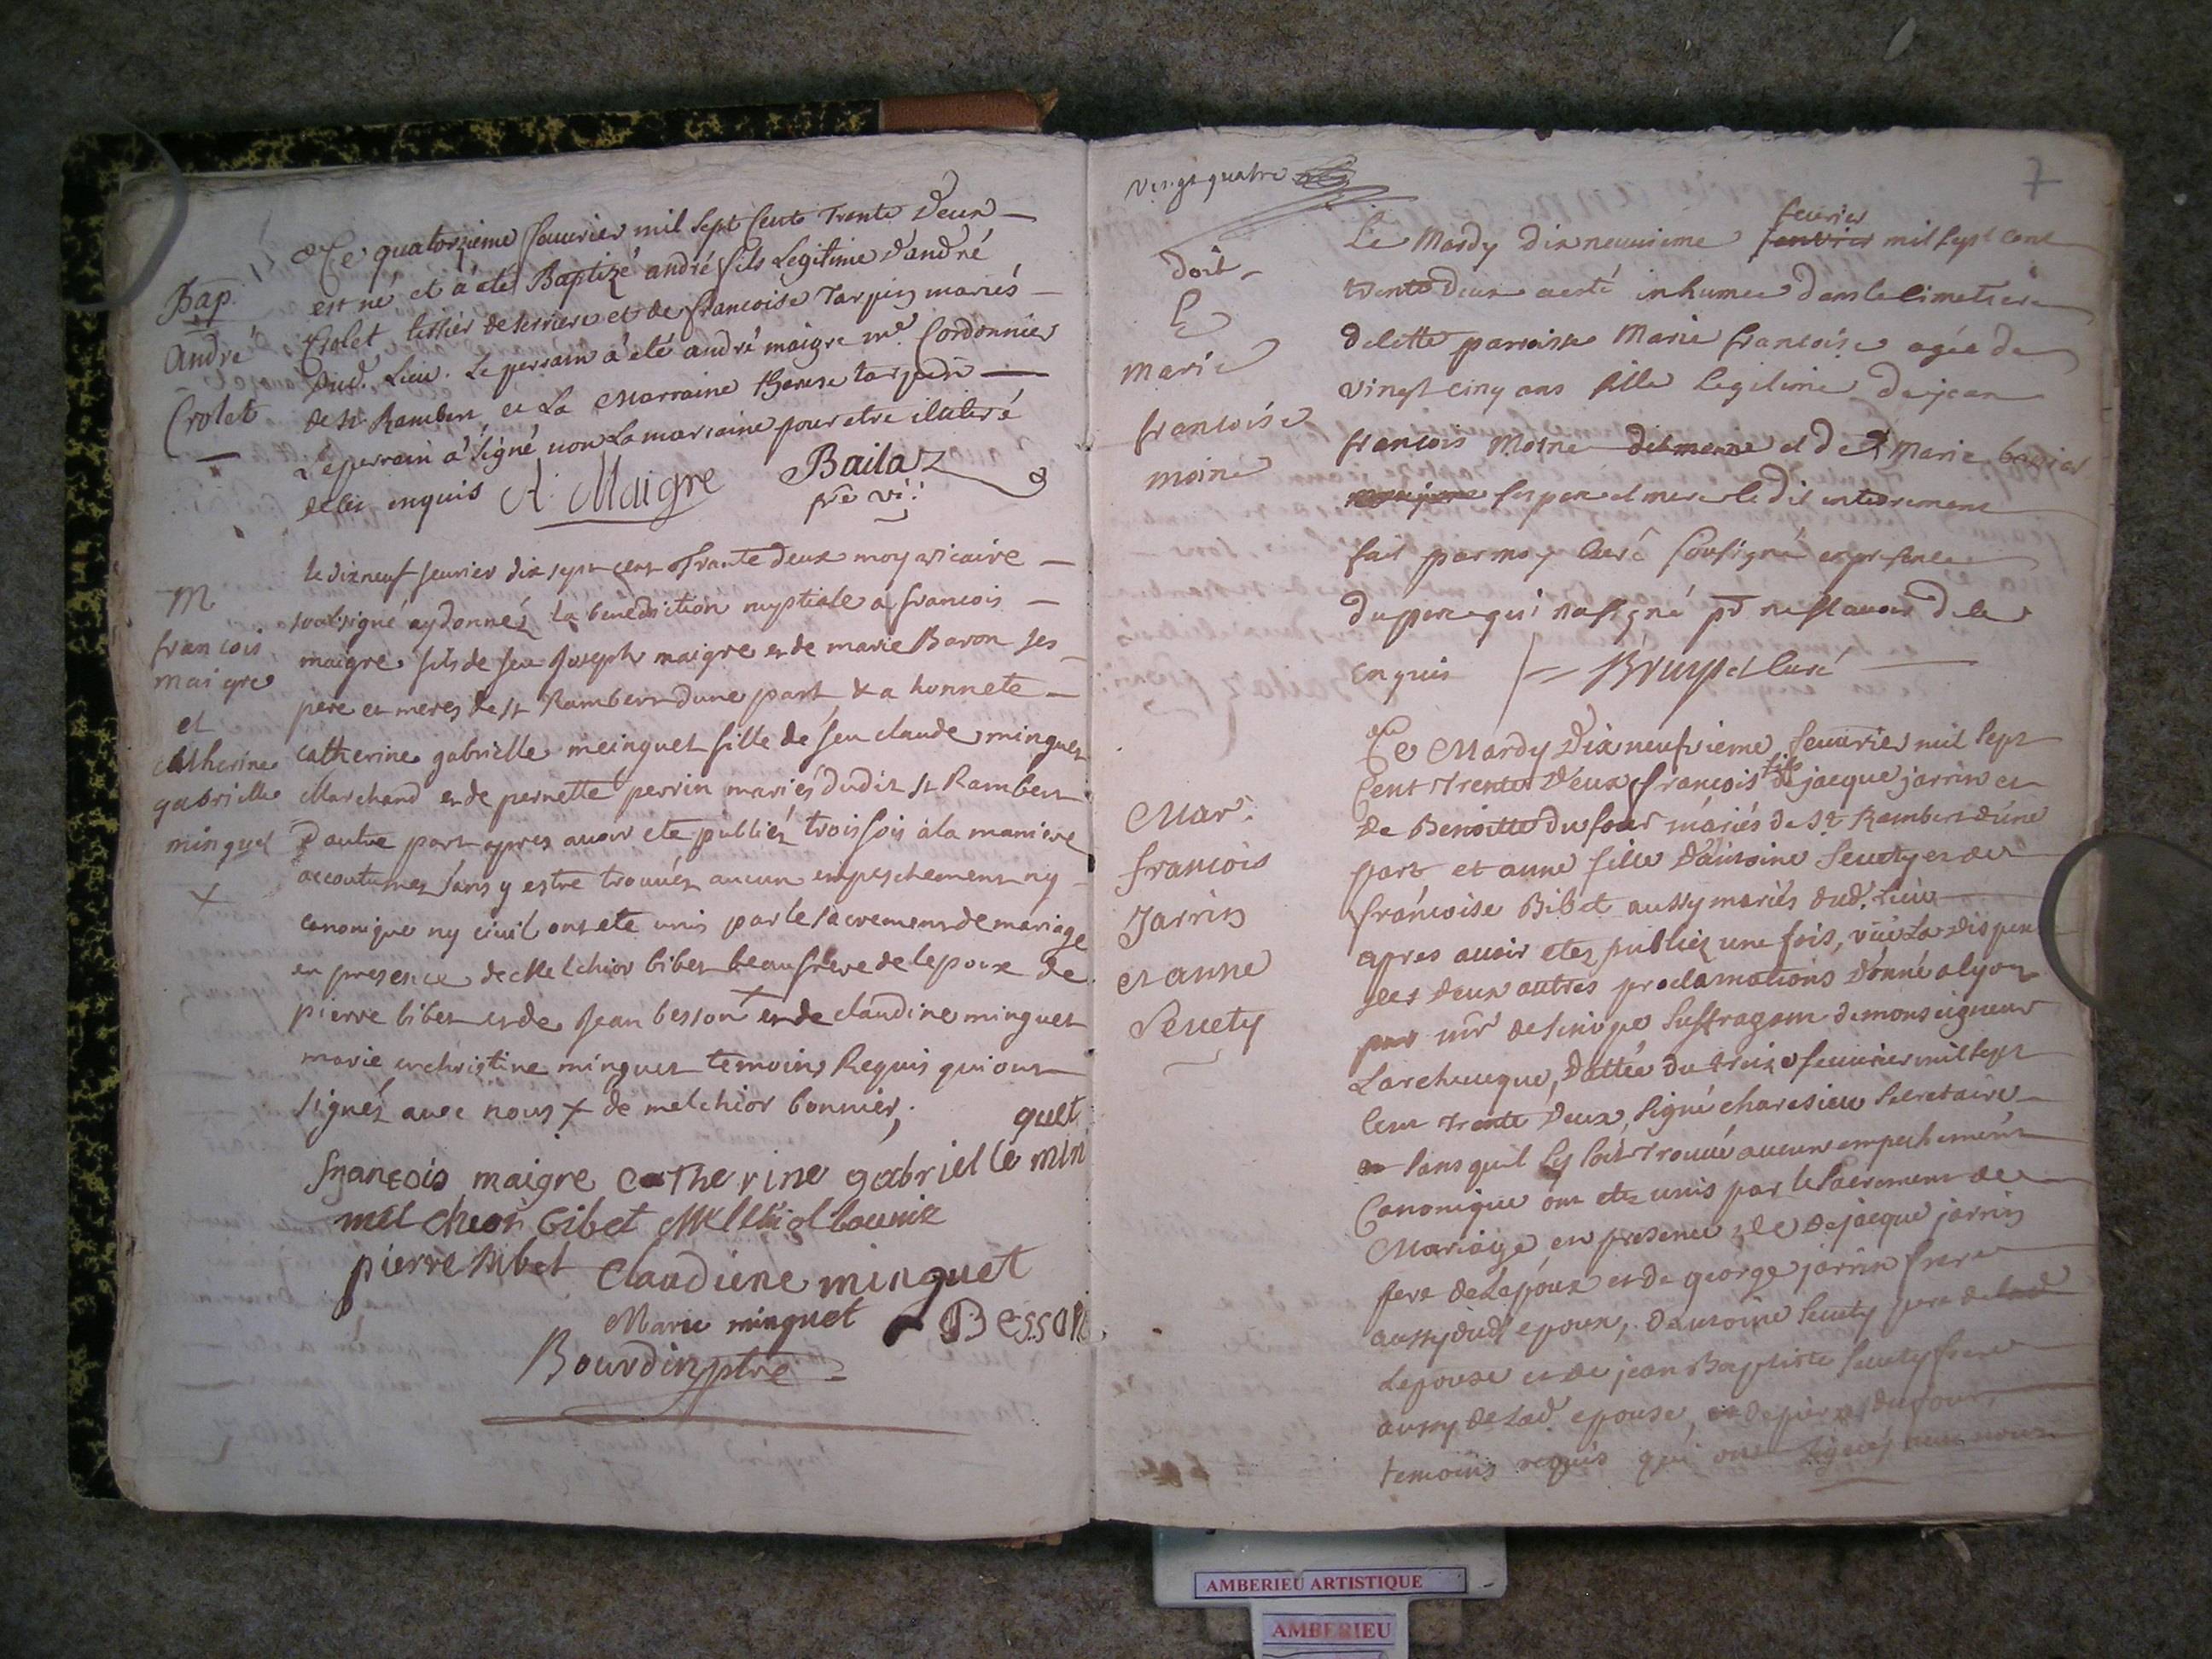 Bap.
André
Crolet
Ce quatorzieme feuurier mil sept Cents Trente Deux
est né et à été Baptizé andré fils Legitime d'andré
Crolet tissier de serriere et de francoise Tarpin mariés
dud. Lieu. Le perrain à été andré maigre me. Cordonnier
de st. Rambert et La Marraine therese tarpin
Le perrain à signé non La marraine pour etre illiteré
de ce enquis A. Maigre Bailaz
pre vi.
M
francois
maigre
et
catherine
gabrielle
minguet
le dixneuf feurier dix sept cent Trante deux moy vicaire
soubsigné ay donnéz la bénédiction nuptiale a francois
maigre fils de feu Joseph maigre et de marie Baron ses
pere et meres de st Rambert dune part & a honnete
catherine gabrielle meinguet fille de feu claude minguet
Marchand et de pernette perrin mariés dudit st Rambert
d'autre part apres auoir eté publiéz trois fois à la maniere
accoutumez sans y estre trouués aucun empeschement ny
canonique ny ciuil ont eté unis par le sacrement de mariage
en presence de Melchior bibet beaufrere de lepoux de
pierre bibet et de Jean besson + et de claudine minguet
marie et christine minguet temoins Requis qui ont
signés auec nous + de melchior bonnier;
quet
françois maigre catherine gabrielle min
melcheor bibet
pierre bibet Claudiene minguet
Marie minguet Besson
Bourdin ptre
vingt quatre
7
Marie
francoise
moine
feurier
Le Mardy dix neuuieme feuvrier mil sept cent
trente deux a esté inhumee dans le cimetiere
de cette parroisse Marie francoise agée de
vingt cinq ans fille Legitime de jean
francois Moine et de Marie
ses pere et mere le dit enterrement
fait par moy Curé soussigné en presence
du pere qui na signé po ne scavoir de le
enquis Curé
Mar.
francois
Jarrin
et anne
Seuety
Ce Mardy Dix neufuieme feuurier mil sept
Cent Trente Deux francois fils de jacque jarrin et
de Benoitte du four mariés de St Rambert d'une
part et anne fille d'antoine Seuety et de
francoise Bibet aussy mariés dud. Lieu
apres auoir etez publiez une fois, vüe La dispense
des deux autres proclamations donné a lyon
par mr de sinope suffragam de monseigneur
Larcheueque, dattée du treize feuurier mil sept
Cent trente Deux, signé charesieu secretaire
sans quil sy soit Trouué aucun empechement
Canonique ont etez unis par le Sacrement de
Mariage en presence de jacque jarrin
pere de Lepoux et de george jarrin frere
aussy dud. epoux, d'antoine Seuety pere de
Lepouse et de jean Baptiste Seuety frere
aussy de Lad. epouse, et de pierre du four,
temoins requis qui ont signés auec nous
AMBERIEU ARTISTIQUE
AMBERIEU